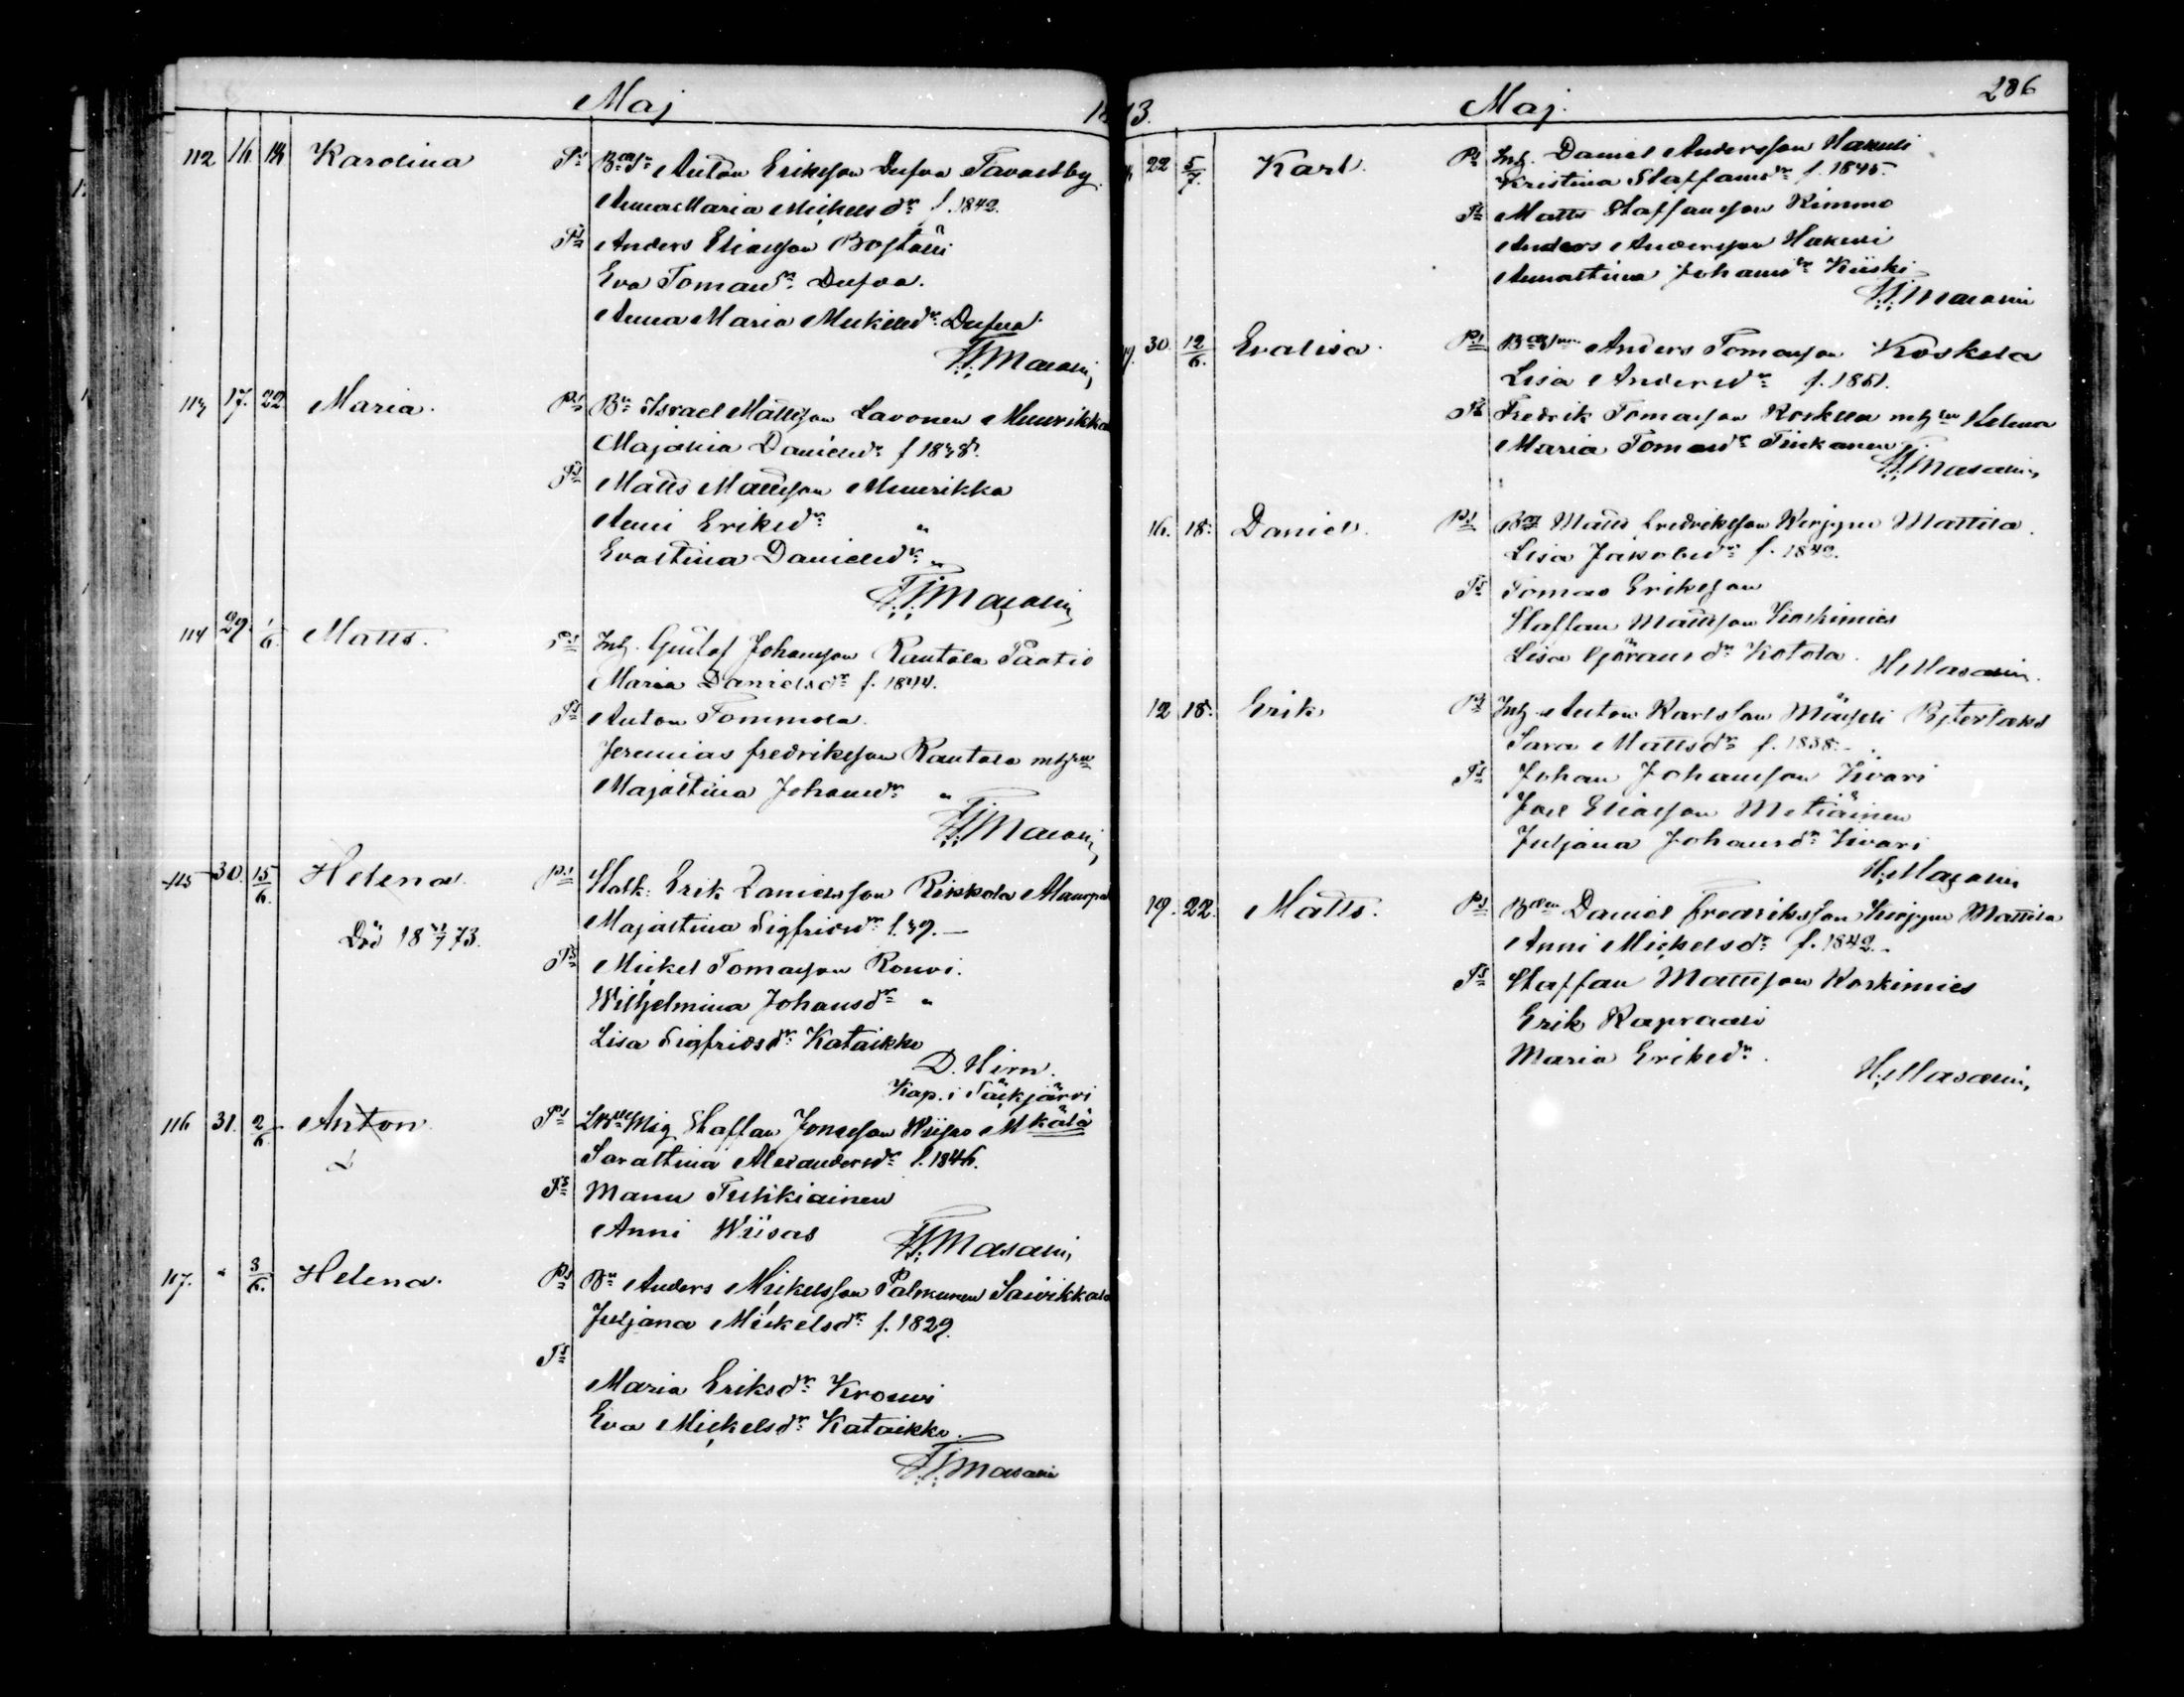 Maj
112 16. 18. Karolina Ps Anton Eriksson Dufva Tavastby
Anna Maria Mickelsdr f. 1842.
Ts Anders Eliasson
Eva Tomasdr Dufva.
Anna Maria Mickelsdr Dufva.
H. Masalin
113 17. 22 Maria. Ps Israel Mattsson Lavonen Muurikka
Majastina Danielsdr f. 1838.
Ts Matts Mattsson Muurikka
Anni Eriksdr "
Evastina Danielsdr "
H. Masalin
114 29. 1/6. Matts. Ps Inh. Gustaf Johansson Rantala Paatio
Maria Danielsdr f. 1844.
Ts Anton Tommola.
Jeremias Fredriksson Rantala
Majastina Johansdr "
H. Masalin
115 30. 15/6. Helena. Ps Erik Danielsson Rikkola
Död 73. Majastina Sigfridsdr f. 39. –
Ts Mickel Tomasson Rouvi.
Wilhelmina Johansdr "
Lisa Sigfridsdr Kataikko
D. Hirn.
Kap. i Säckjärvi
116 31. 2/6. Anton Ps Staffan
Sarastina Alexandersdr f. 1846.
Ts Manu Tuhkiainen
Anni Wiisas
H. Masalin
117. " 3/6. Helena. Ps Bn Anders Mickelsson Palmunen Saivikkala
Juljana Mickelsdr f. 1829.
Ts
Maria Eriksdr Krouvi
Eva Mickelsdr Kataikko.
H. Masalin
13. Maj. 286
22 5/7. Karl. Ps Inh. Daniel Andersson Hakuli
Kristina Staffansdr f. 1845.
Ts Matts Staffansson Kimmo
Anders Andersson Hakuli
Annastina Johansdr Kiiski
H. Masalin
30. 12/6. Evalisa. Ps Anders Tomasson Koskela
Lisa Andersdr f. 1851.
Ts Fredrik Tomasson Koskela Helena
Maria Tomasdr Tinkanen
H. Masalin
16. 18. Daniel. Ps Matts Fredriksson Kirjgne Mattila.
Lisa Jakobsdr f. 1842.
Ts Tomas Eriksson
Staffan Mattsson Koskimies
Lisa Göransdr Kotola.
H. Masalin.
12 18. Erik Ps Inh. Anton Karlsson Pyterlaks
Sara Mattsdr f. 1838. –
Ts Johan Johansson Kivari
Joel Eliasson Metiäinen
Juljana Johansdr Kivari
H. Masalin
19. 22. Matts. Ps Daniel Fredriksson Kirjgne Mattila
Anni Mickelsdr f. 1842. –
Ts Staffan Mattsson Koskimies
Erik Kapraali
Maria Eriksdr.
H. Masalin